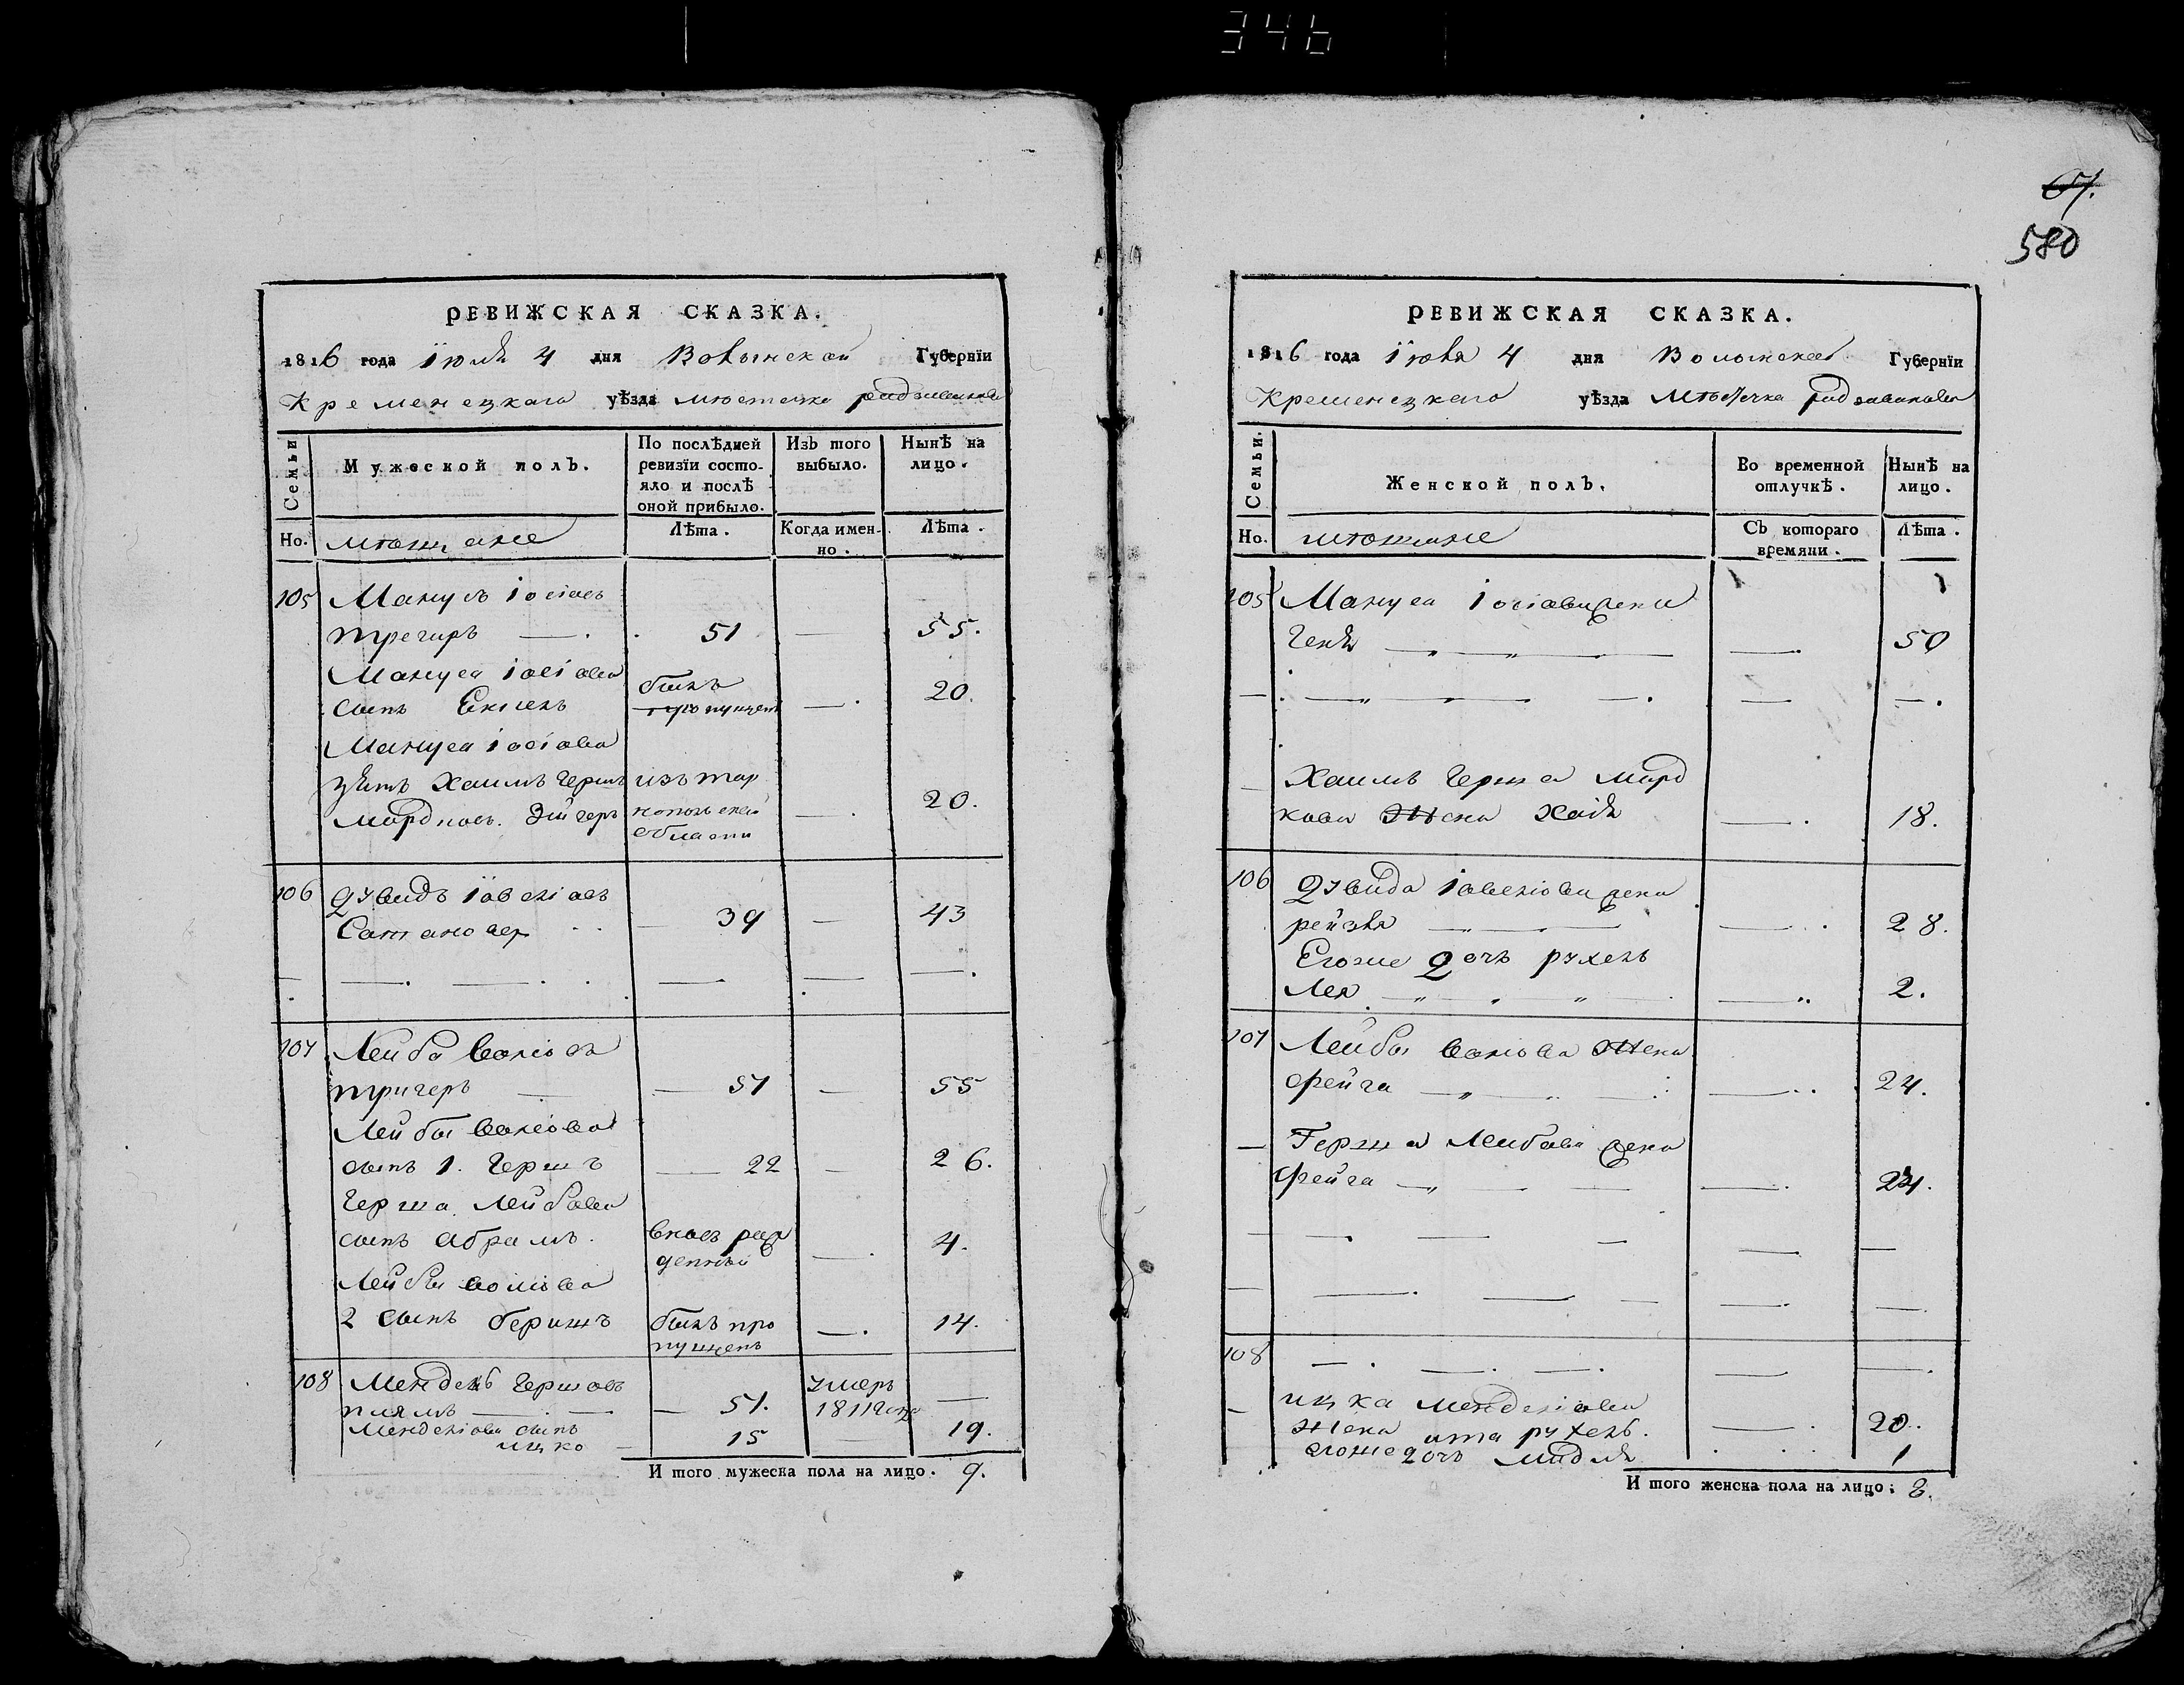 346
67.
580
РЕВИЖСКАЯ СКАЗКА.
1816 года Іюля 4 дня Волынской Губернїи
Кременецкаго уѣзда мѣстечка радзивилова
Семьи
Мужеской полъ.
По послѣдней ревизїи состо-
яло и послѣ
оной прибыло.
Изъ того
выбыло.
Нынѣ на
лицо.
Но.
мѣщане
Лѣта.
Когда имен-
но.
Лѣта.
105 Манусъ іосіовъ
трегиръ — 51 — 55.
Мануса іосіова
сынъ Екиель былъ пропущенъ — 20.
Мануса іосіова
зять Хаимъ Гершъ изъ тар
мордковъ Эйгеръ нопольской области — 20.
106 Дувидъ Іовелiовъ
Сатановер — 39 — 43
107 Лейба Волiовъ
тригеръ — 51 — 55
Лейбы Волiова
сынъ 1. Гершъ — 22 — 26.
Герша Лейбова
сынъ абрамъ. вновь рож
денный — 4.
Лейбы волiова
2 сынъ беришъ былъ про
пущенъ — 14.
108 Мендель Гершовъ умеръ
плямъ — 51. 1811 года —
Менделiова сынъ
ицко — 15 — 19.
И того мужеска пола на лицо. 9.
РЕВИЖСКАЯ СКАЗКА.
1816 года Іюля 4 дня Волынской Губернїи
Кременецкаго уѣзда Мѣстечка радзивилова
Семьи.
Женской полъ.
Во временной
отлучкѣ.
Нынѣ на
лицо.
Но.
мѣщане
Съ котораго
времяни.
Лѣта.
105 Мануса іосіова жена
Геня — 50
Хаимъ Герша морд
кова Жена Хая — 18.
106 Дувида іовелiова жена
рейзля — 28.
Егоже дочь рухель
Лея — 2.
107 Лейбы волiова Жена
фейга — 24.
Герша Лейбова жена
фейга — 24.
108 — —
ицка Менделiова
Жена ита рухель. — 20.
егоже дочь мидля 1
И того женска пола на лицо: 8.